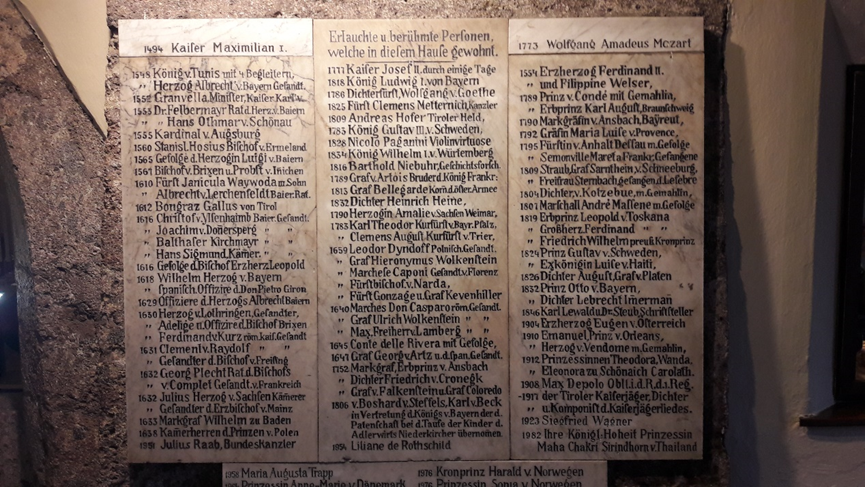 1494 Kaiser Maximilian I.
1548 König v. Tunis mit 4 Begleitern,
" Herzog Albrecht v. Bayern
1552 Granvella, Minister, Kaiser Karl v.
1553 Dr. Felbermayr Rat d. Herz. v. Bayern
" " Hans Othmar v. Schönau
1555 Kardinal v. Augsburg
1560 Stanisl. Hosius Bischof v. Ermeland
1565 Gefolge d. Herzogin Luigi v. Baiern
1561 Bischof v. Brixen u. Probst v. Inichen
1610 Fürst Janicula Waywoda m. Sohn
" Albrecht v. Lerchenfelst Baier. Rat.
1612 Bongraz Gallus von Tirol
1616 Christof v. Ylsenhaimb Baier. Gesandt.
" Joachim v. Donersperg " "
" Balthaser Kirchmayr " "
" Hans Sigmund, Kämer. " "
1616 Gefolge d. Bischof Erzherz. Leopold
1618 Wilhelm Herzog v. Bayern
" Spanisch. Offizire d. Don Pietro Giron
1629 Offiziere d. Herzogs Albrecht Baiern
1630 Herzog v. Lothringen, Gesandter,
" Adelige u. Offizire d. Bischof Brixen
" Ferdinand v. Kurz röm. kais. gesandt
1631 Clement v. Raydolf " "
" Gesandter d. Bischof v. Freising
1632 Georg Plecht Rat d. Bischofs
" v. Complet Gesandt. v. Frankreich
1632 Julius Herzog v. Sachsen Kämerer
" Gesandter d. Erzbischof v. Mainz
1633 Markgraf Wilhelm zu Baden
1638 Kamerherren d. Prinzen v. Polen
Julius Raab, Bundeskanzler
Erlauchte u. berühmte Personen,
welche in diesem Hause gewohnt.
1777 Kaiser Josef II. durch einige Tage
1818 König Ludwig I. von Bayern
1786 Dichterfürst, Wolfgang v. Goethe
1825 Fürst Clemens Metternich, Kanzler
1809 Andreas Hofer Tiroler Held,
1783 König Gustav III. v. Schweden,
1828 Nicolo Paganini Violinvirtuose
1834 König Wilhelm I. v. Würtemberg
1816 Barthold Niebuhr, Geschichtsforsch.
1789 Graf v. Artois Bruder d. König Frankr:
1813 Graf Bellegarde Kom. d. öster. Armee
1832 Dichter Heinrich Heine,
1790 Herzogin Amalie v. Sachsen Weimar,
1783 Karl Theodor Kurfürst v. Bayr. Pfalz,
" Clemens August. Kurfürst v. Trier,
1659 Leodor Dyndoff Polnisch. Gesandt.
" Graf Hieronymus Wolkenstein
" Marchese Caponi Gesandt. v. Florenz
" Fürstbischof v. Narda,
" Fürst Gonzage u. Graf Kevenhiller
1640 Marches Don Casparo röm. Gesandt.
" Graf Ulrich Wolkenstein " "
" Max. Freiherr v. Lamberg " "
1645 Conte delle Rivera mit Gefolge,
1641 Graf Georg v. Artz u. d. span. Gesandt.
1752 Markgraf, Erbprinz v. Ansbach
" Dichter Friedrich v. Cronegk
" Graf v. Falkenstein u. Graf Coloredo
1806 v. Boshard v. Steffels, Karl v. Beck
in Vertretung d. Königs v. Bayern der d.
Patenschaft bei d. Taufe der Kinder d.
Adlerwirts Niederkircher übernomen.
1954 Liliane de Rothschild
1773 Wolfgang Amadeus Mozart
1554 Erzherzog Ferdinand II.
" und Filippine Welser,
1789 Prinz v. Condé mit Gemahlin,
" Erbprinz Karl August, Braunschweig
1790 Markgräfin v. Ansbach, Bayreut,
1792 Gräfin Maria Luise v. Provence,
1795 Fürstin v. Anhalt Dessau m. Gefolge
" Semonville Maret a Frankr. Gefangene
1809 Straub, Graf Sarntheim v. Schneeburg,
" Freifrau Sternbach, gefangen d. Lefebre
1804 Dichter, v. Kotzebue, m. Gemahlin,
1801 Marschall André Massene m. Gefolge
1819 Erbprinz Leopold v. Toskana
" Großherz. Ferdinand " "
" Friedrich Wilhelm preus. Kronprinz
1824 Prinz Gustav v. Schweden,
" Exkönigin Luise v. Haiti,
1826 Dichter August, Graf v. Platen
1832 Prinz Otto v. Bayern,
" Dichter Lebrecht Imerman
1846 Karl Lewald u. Dr. Steub, Schriftsteller
1904 Erzherzog Eugen v. Österreich
1910 Emanuel, Prinz v. Orleans,
" Herzog v. Vendome m. Gemahlin,
1912 Prinzessinen Theodora, Wanda,
" Eleonora zu Schönaich Carolath.
1908 Max Depolo Oblt. i. d. R. d. 1. Reg.
-1911 der Tiroler Kaiserjäger, Dichter
" u. Komponist d. Kaiserjägerliedes.
1923 Siegfried Wagner
1982 Ihre Königl. Hoheit Prinzessin
Maha Chakri Sirindhorn v. Thailand
1958 Maria Augusta Trapp
Prinzessin Anne-Marie v. Dänemark
1976 Kronprinz Harald v. Norwegen
1976 Prinzessin Sonja v. Norwegen